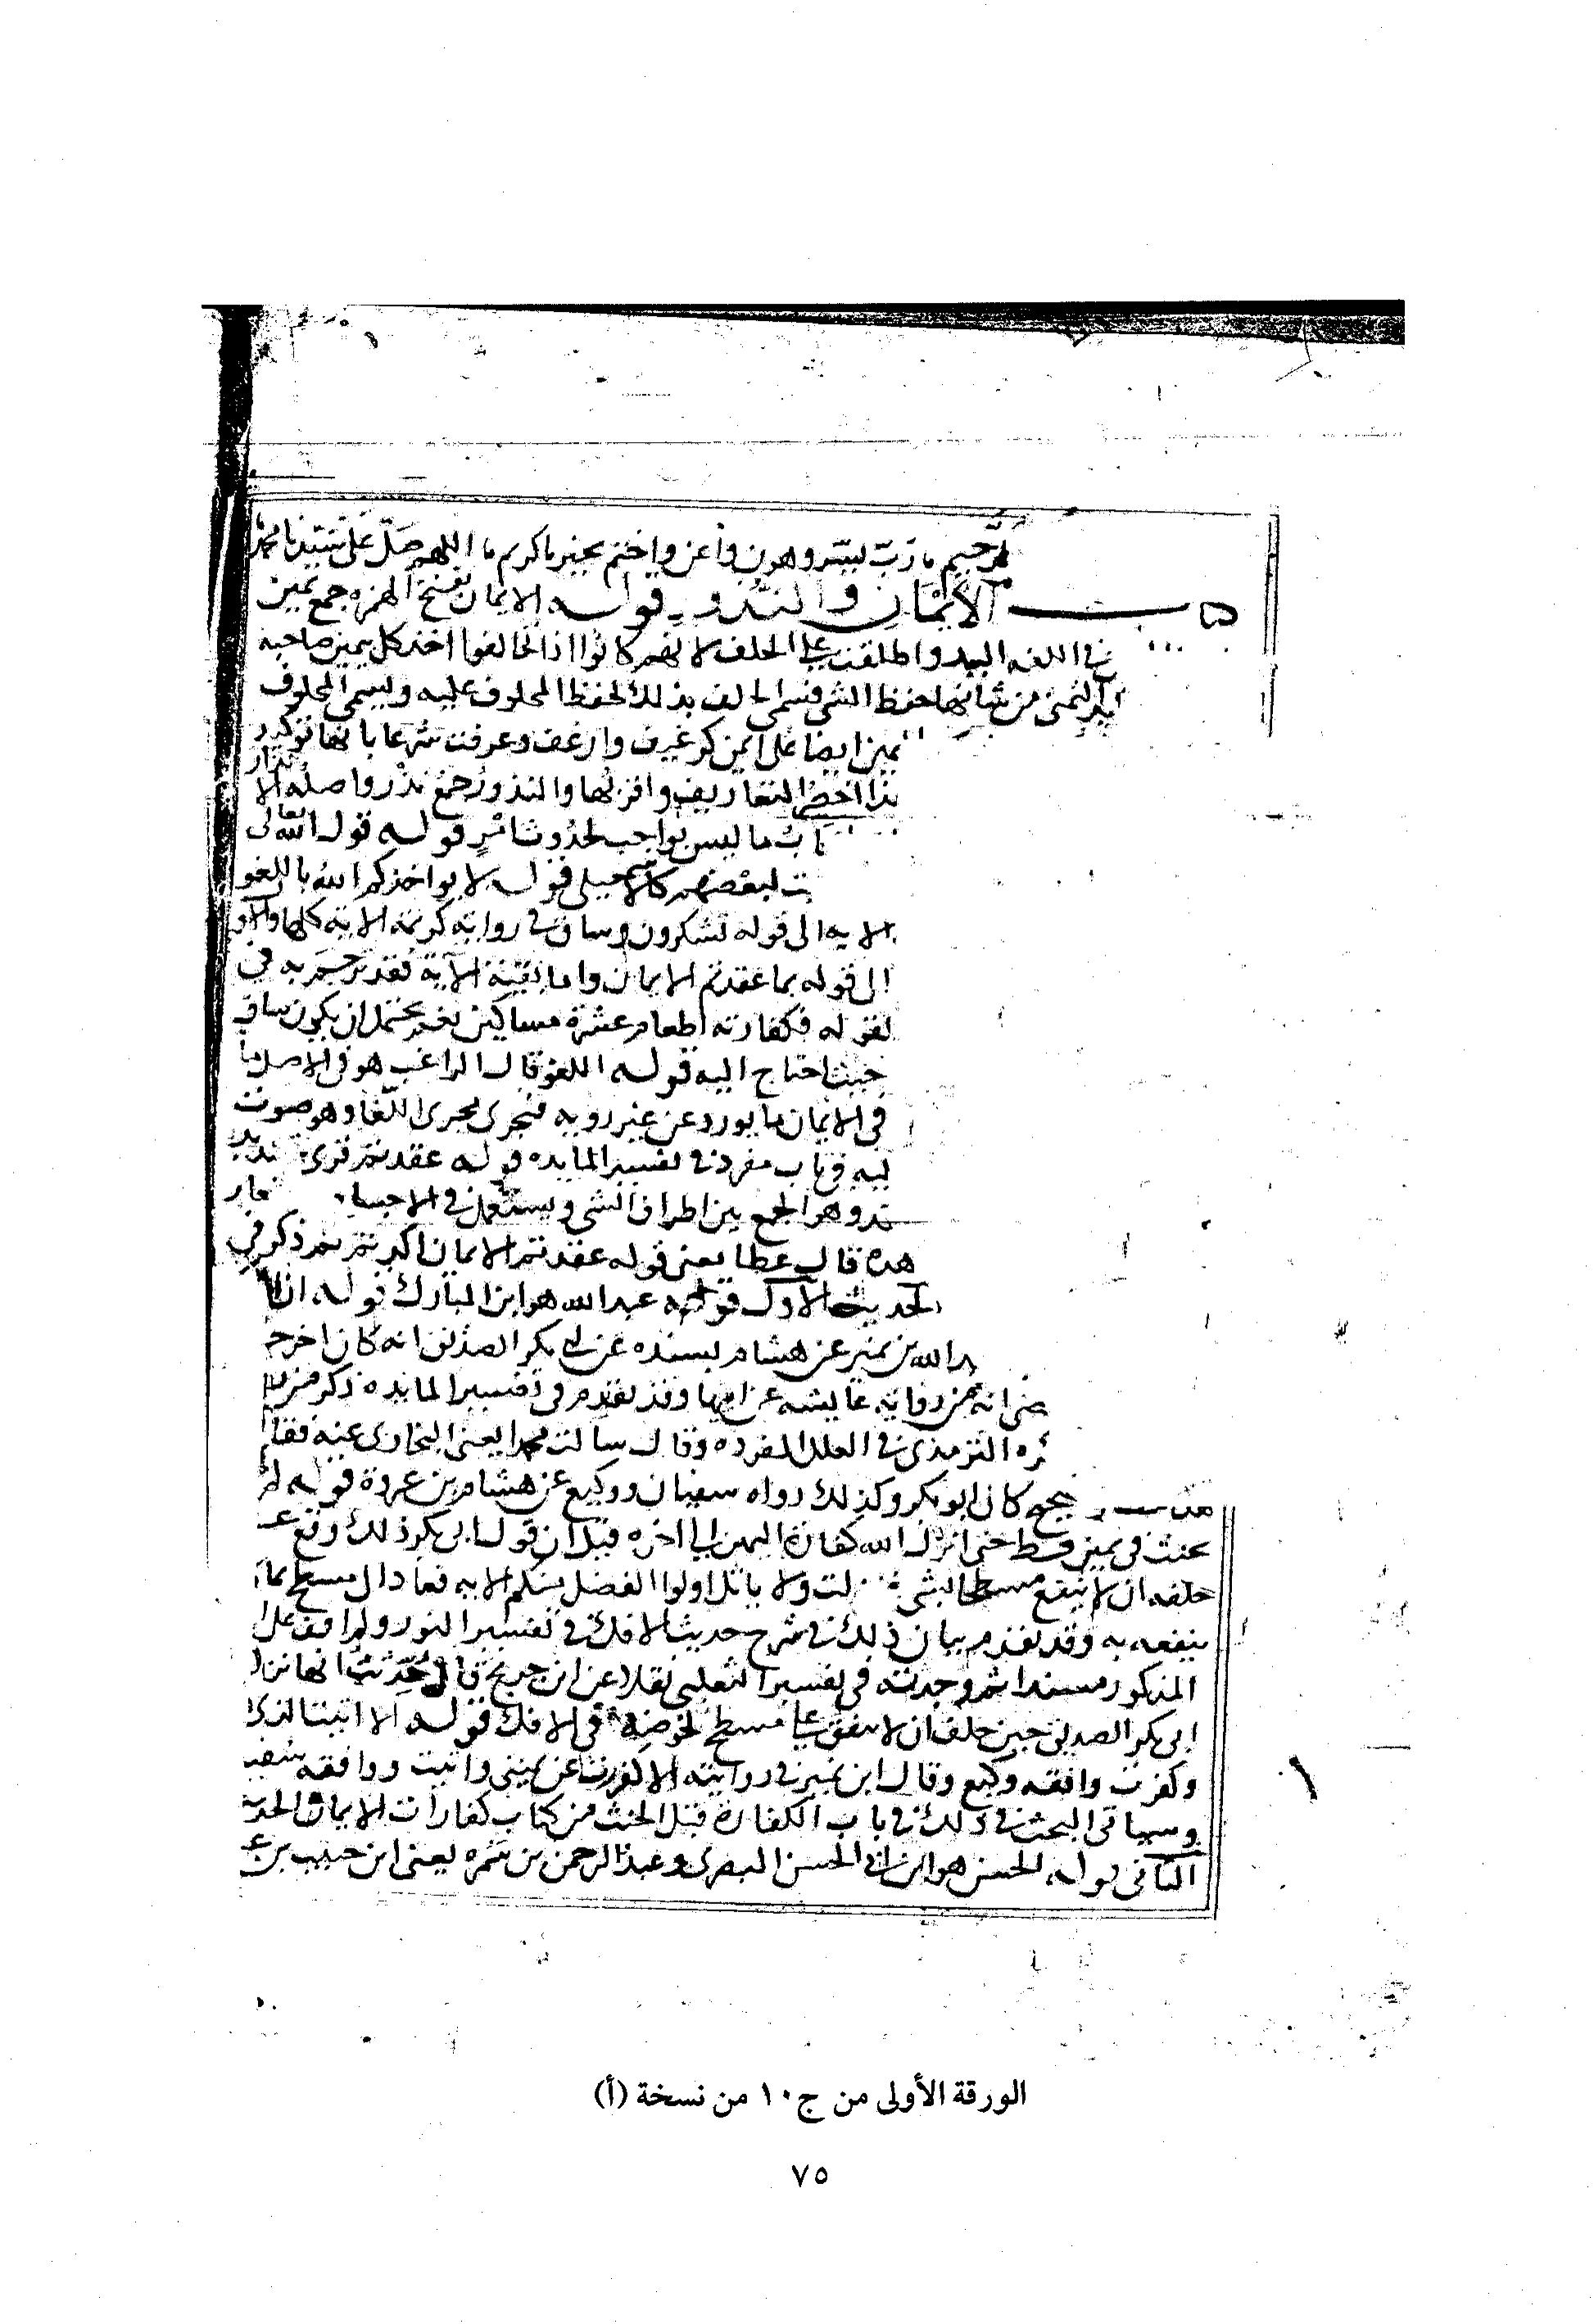 الرحيم يا رب يسر وهون واعن واختم بخير يا كريم اللهم صل على سيدنا محمد
كتاب الأيمان والنذور قوله الايمان بفتح الهمزه جمع يمين
في اللغه اليد واطلقت على الحلف لانهم كانوا اذا تحالفوا اخذ كل بيمين صاحبه
اليد اليمنى من شانها حفظ الشي فسمى الحلف بذلك لحفظ المحلوف عليه ويسمى المحلوف
يمين ايضا على ايمن كرغيف وارغف وعرفت شرعا بانها توكيد
هذا اخصر التعاريف واقربها والنذور جمع نذر واصله الانذار
ما ليس بواجب لحدوث امر قوله قول الله تعالى
لبعضهم كالاسمعيلي قوله لا يواخذكم الله باللغو
الايه الى قوله تشكرون وساق في رواية كريمة الاية كلها والاو
الى قوله بما عقدتم الايمان واما بقية الآية فقد ترجم به في
لقوله فكفارته اطعام عشرة مساكين نعم يحتمل ان يكون ساق
حيث احتاج اليه قوله اللغو قال الراغب هو في الاصل ما
في الايمان ما يورد عن غير رويه فيجرى مجرى اللغا وهو صوت
ليه في باب مفرد في تفسير المايده قوله عقدتم قرى بتشديد
وهو الجمع بين اطراف الشي ويستعمل في الاجسام
هذه قال عطا معنى قوله عقدتم الايمان اكدتم ثم ذكر في
الحديث الأول قوله عبد الله هو ابن المبارك قوله ان ا
الله بن نمير عن هشام بسنده عن ابي بكر الصديق انه كان اخرجه
انه من رواية عايشه عن ابيها وقد تقدم في تفسير المايده ذكر من
الترمذي في العلل المفرده وقال سالت محمدا يعنى البخارى عنه فقال
هذا صحيح كان ابو بكر وكذلك رواه سفيان ووكيع عن هشام بن عروة قوله لم
يحنث في يمين قط حتى انزل الله كفارة اليمين الى اخره قيل ان قول ابى بكر ذلك وقع ع
حلفه ان لا ينفع مسطحا بشي فنزلت ولا ياتل اولوا الفضل منكم الايه فعاد الى مسطح بما
ينفعه به وقد تقدم بيان ذلك في شرح حديث الافك في تفسير النور ولم اقف على
المذكور مسندا ثم وجدته في تفسير الثعلبي نقلا عن ابن جريج قال حدثت انها نزل
ابى بكر الصديق حين حلف ان لا ينفق على مسطح لخوضه في الافك قوله الا اتيت الذى
وكفرت وافقه وكيع وقال ابن نمير في روايته الا كفرت عن يميني واتيت ووافقه سفين
وسياتى البحث في ذلك في باب الكفارة قبل الحنث من كتاب كفارات الايمان الحديث
الثانى قوله الحسن هو ابن ابي الحسن البصرى وعبد الرحمن بن سمره يعنى ابن حبيب بن ع
الورقة الأولى من ج١٠ من نسخة (أ)
٧٥